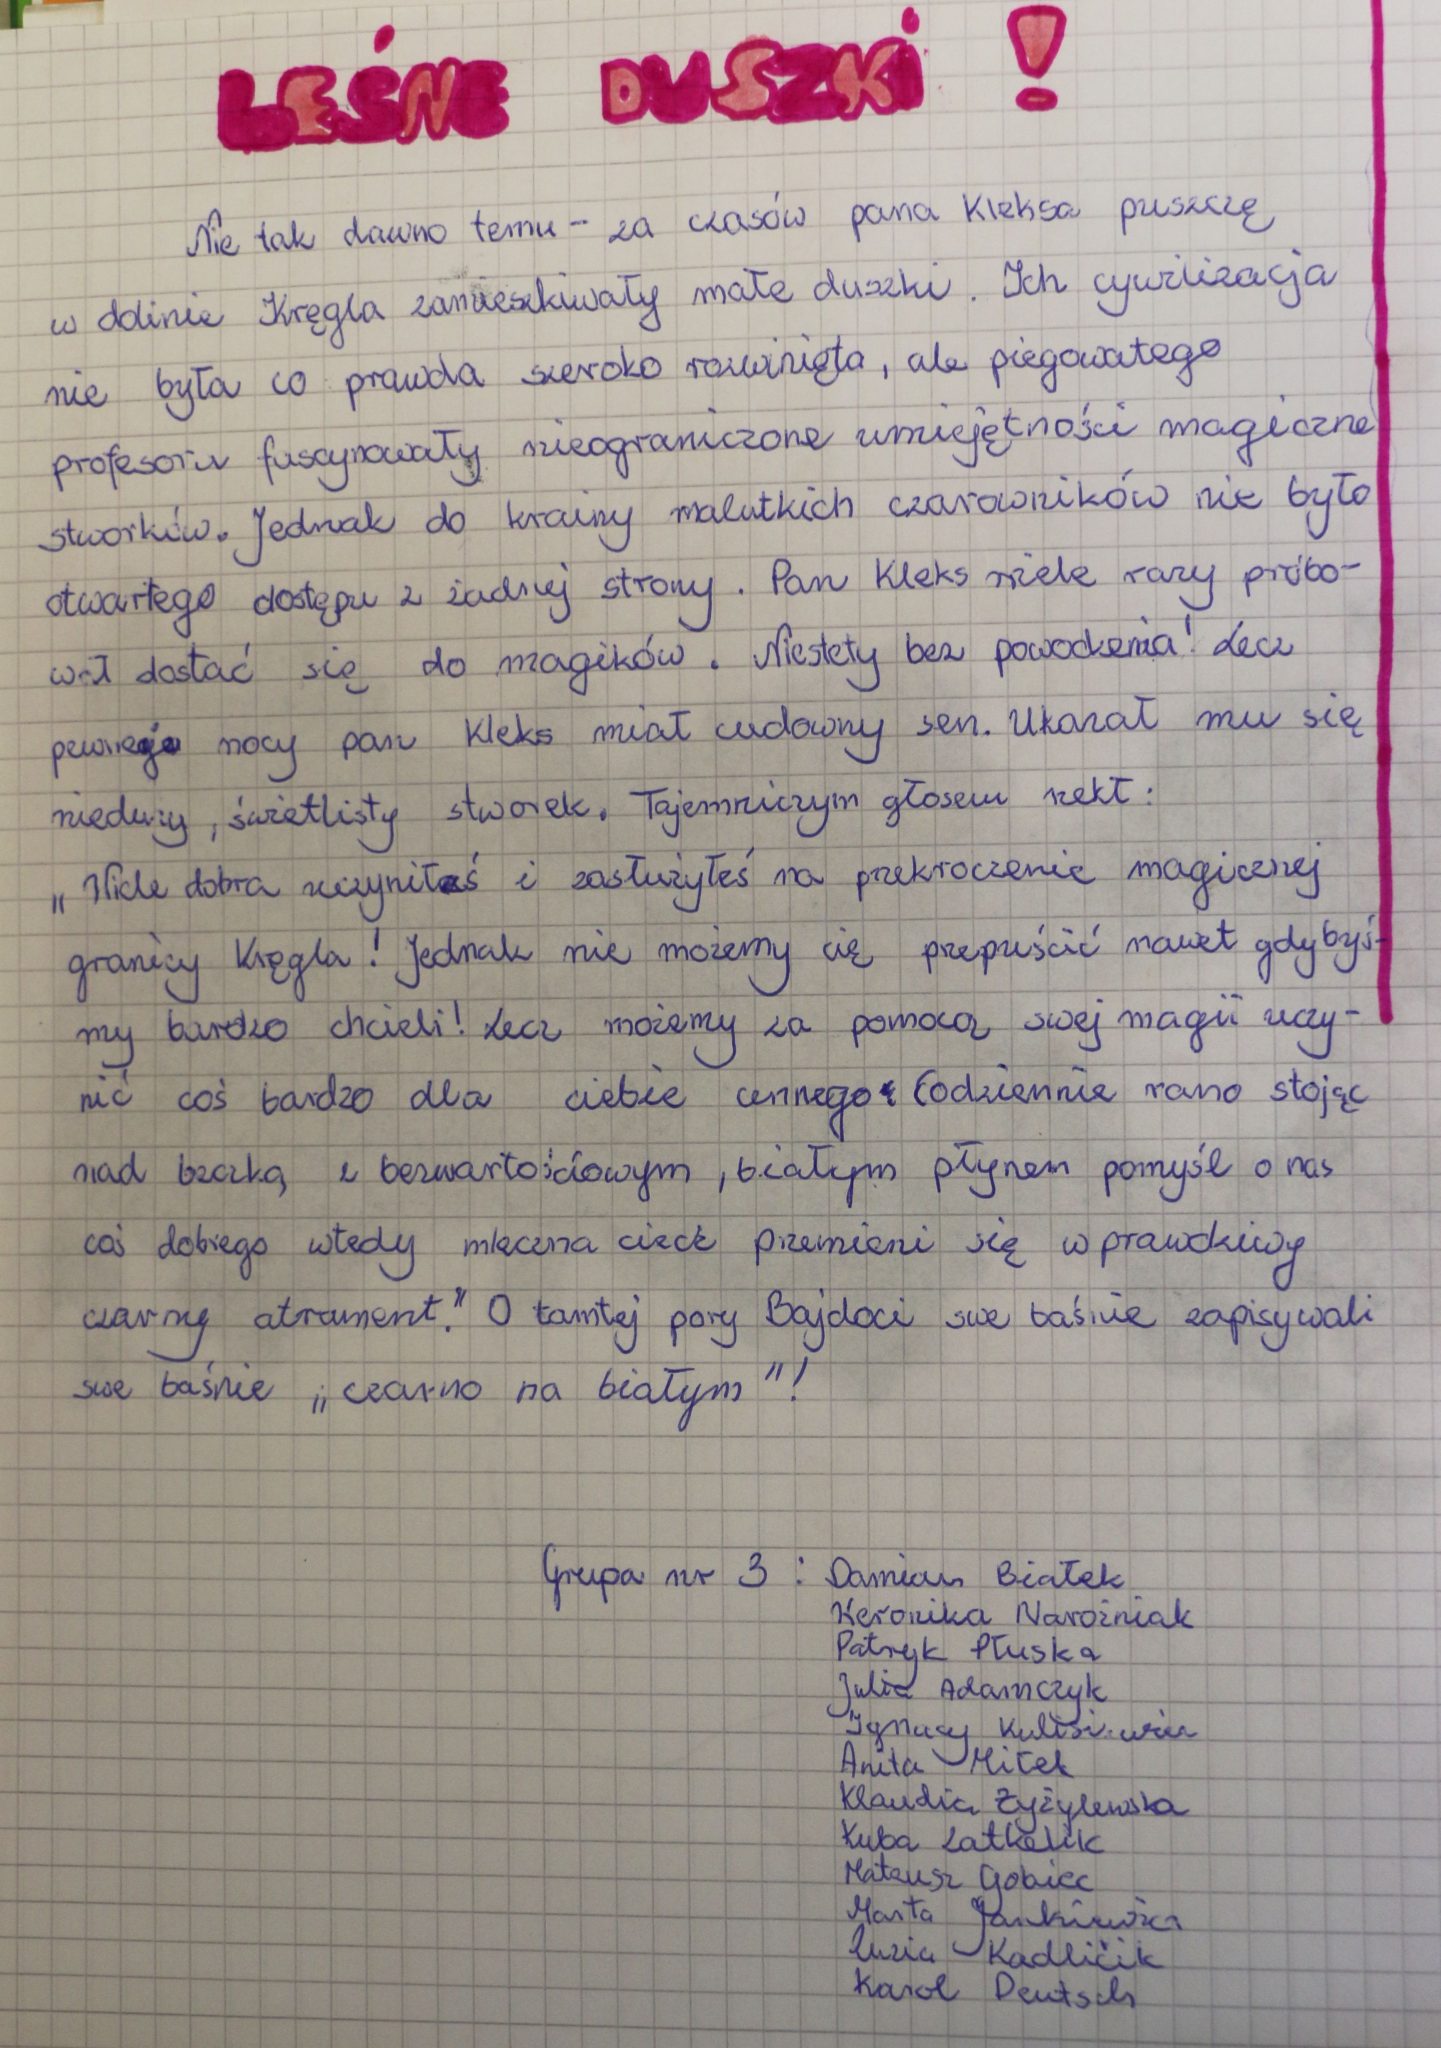 LEŚNE DUSZKI !
Nie tak dawno temu - za czasów pana Kleksa puszczę
w dolinie Kręgla zamieszkiwały małe duszki. Ich cywilizacja
nie była co prawda szeroko rozwinięta, ale piegowatego
profesora fascynowały nieograniczone umiejętności magiczne
stworków. Jednak do krainy malutkich czarowników nie było
otwartego dostępu z żadnej strony. Pan Kleks wiele razy próbo-
wał dostać się do magików. Niestety bez powodzenia! Lecz
pewnego nocy pan Kleks miał cudowny sen. Ukazał mu się
nieduży, świetlisty stworek. Tajemniczym głosem rzekł:
„Wiele dobra uczyniłeś i zasłużyłeś na przekroczenie magicznej
granicy Kręgla! Jednak nie możemy cię przepuścić nawet gdybyś-
my bardzo chcieli! Lecz możemy za pomocą swej magii uczy-
nić coś bardzo dla ciebie cennego. Codziennie rano stojąc
nad beczką z bezwartościowym, białym płynem pomyśl o nas
coś dobrego wtedy mleczna ciecz przemieni się w prawdziwy
czarny atrament." O tamtej pory Bajdoci swe baśnie zapisywali
swe baśnie „czarno na białym"!
Grupa nr 3 : Damian Białek
Weronika Narożniak
Patryk Płuska
Julia Adamczyk
Ignacy
Anita Miłek
Klaudia Zyżylewska
Kuba
Mateusz Gobiec
Marta Jankiewicz
Zuzia Kadlićik
Karol Deutsch